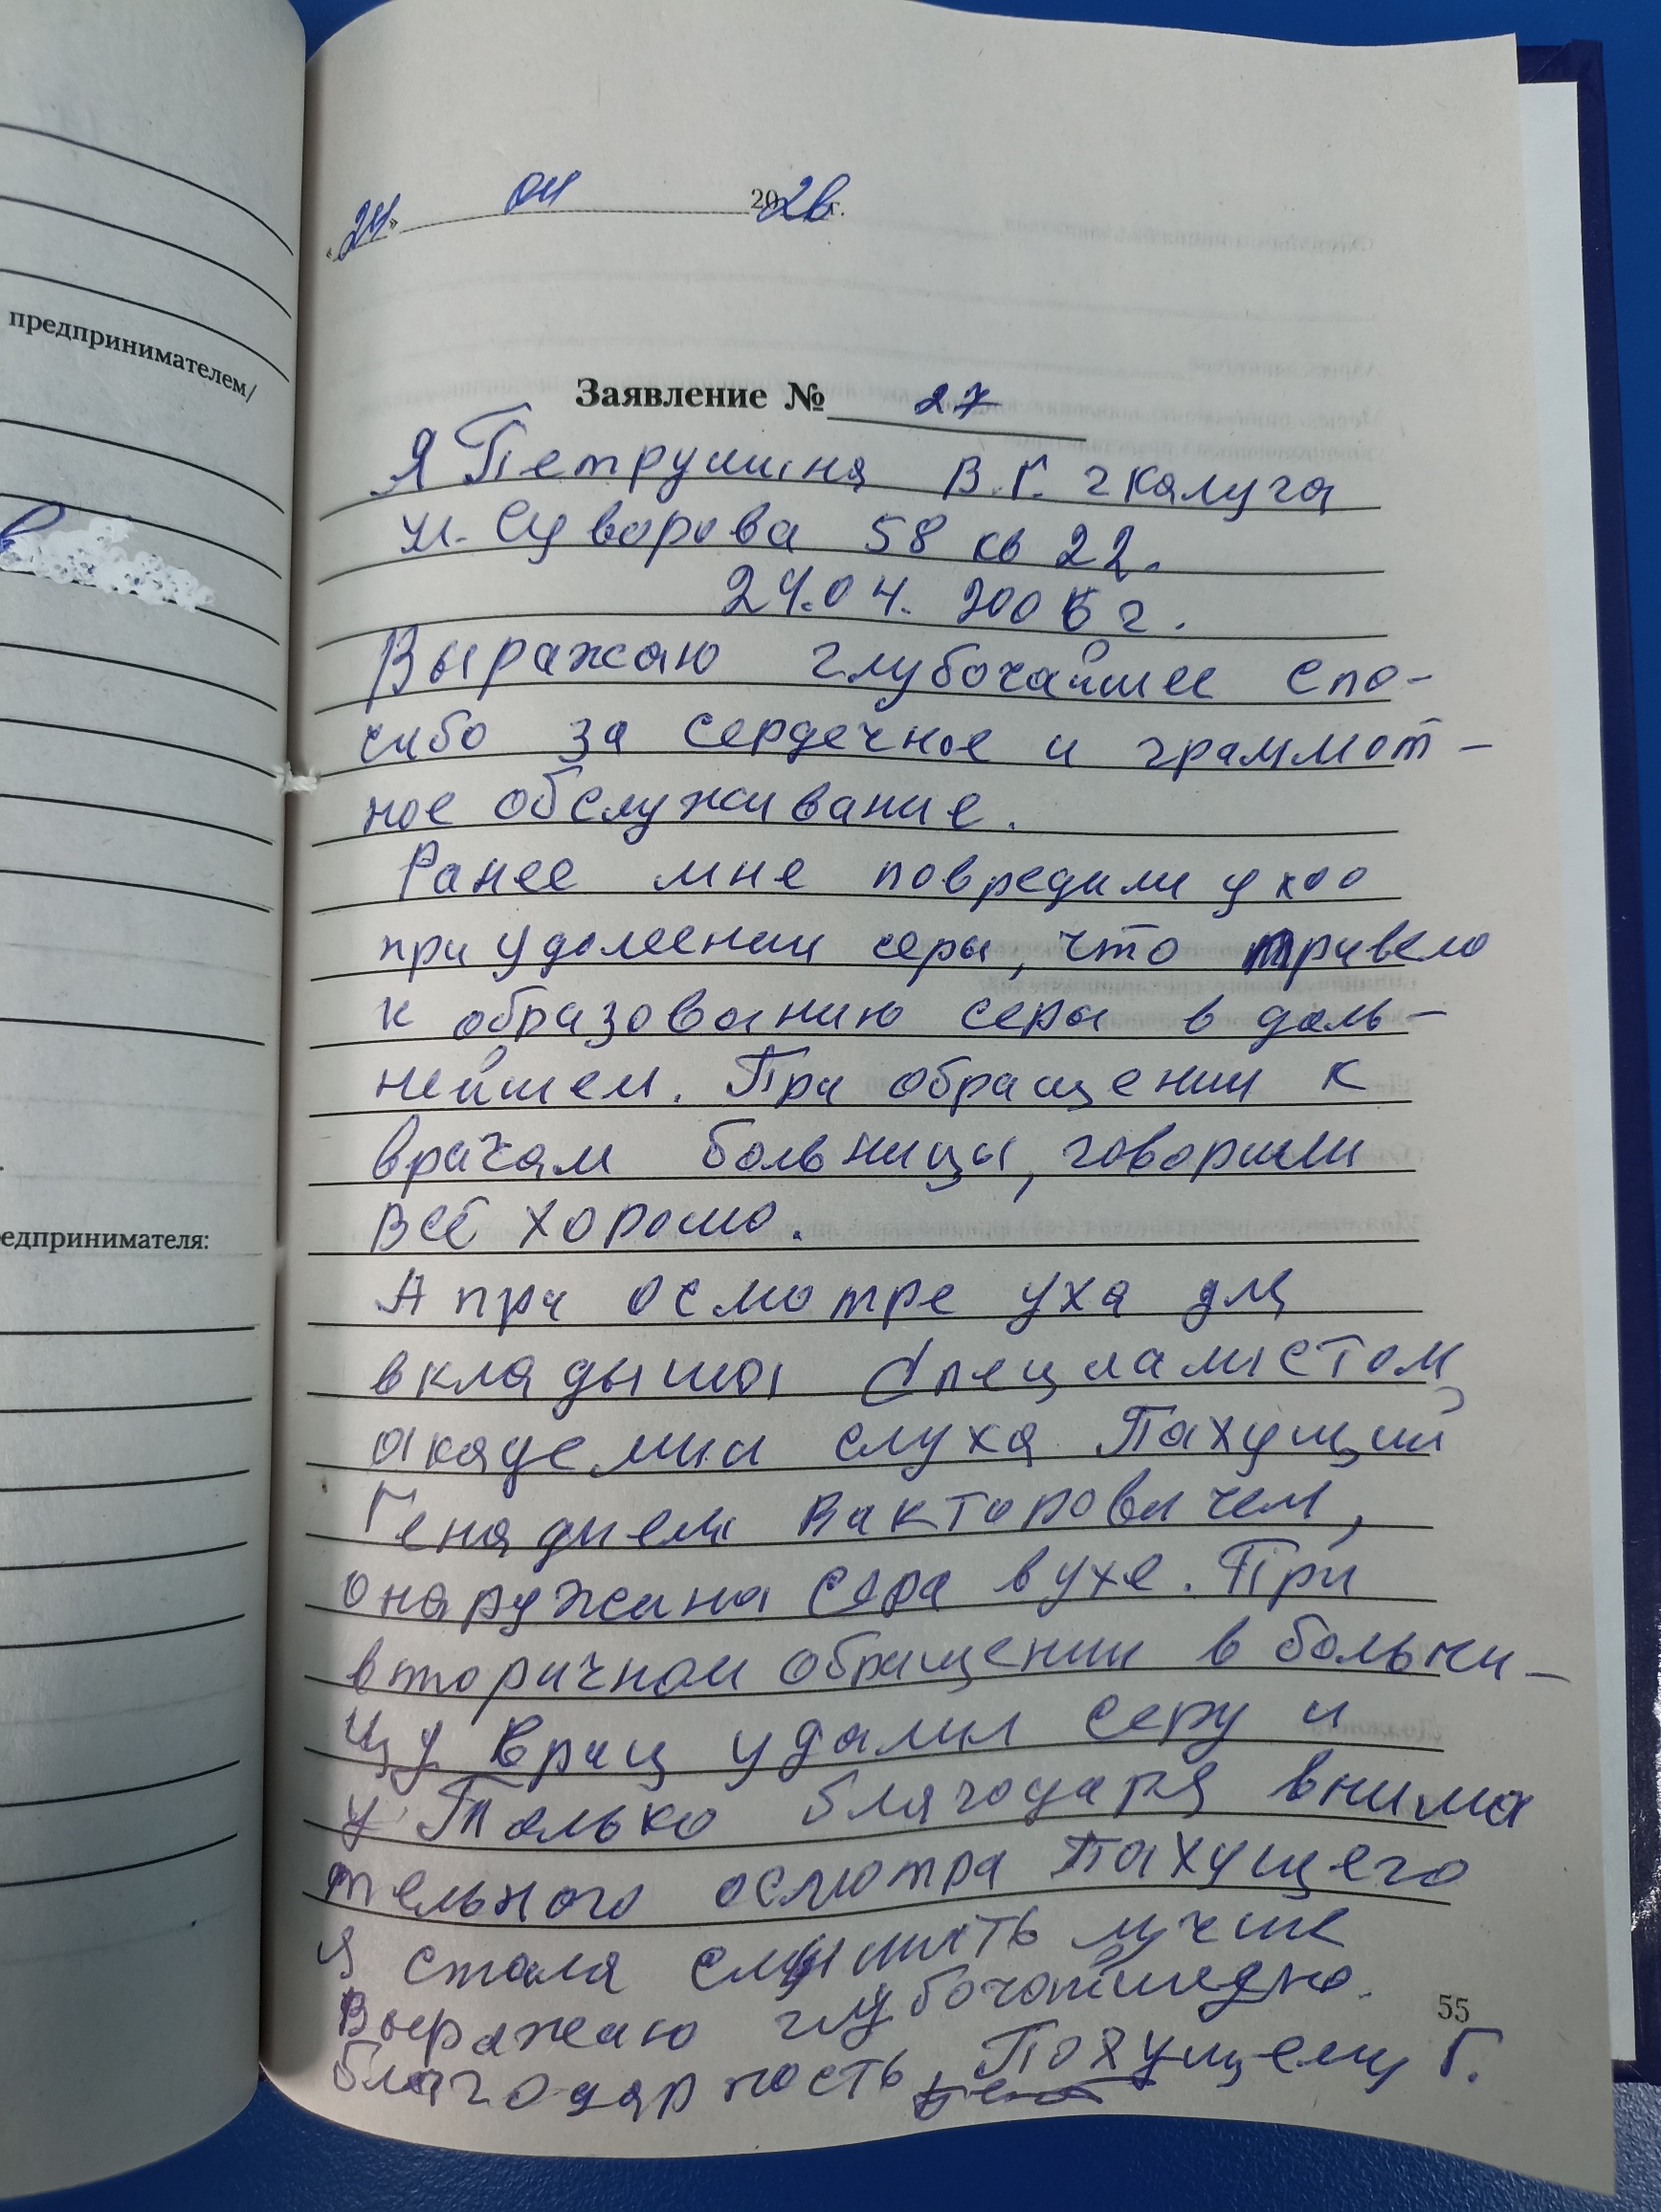 предпринимателем/
едпринимателя:
"24" 04 2026 г.
Заявление № 27
Я Петрушина В.Г. г Калуга
ул. Суворова 58 кв 22.
24.04. 2006 г.
Выражаю глубочайшее спа-
сибо за сердечное и граммот-
ное обслуживание.
Ранее мне повредили ухо
при удалении серы, что привело
к образованию серы в даль-
нейшем. При обращении к
врачам больницы, говорили
всё хорошо.
А при осмотре уха для
вкладыша специалистом
академии слуха Пахущий
Генадием Викторовичем,
онаружина сера в ухе. При
вторичном обращении в больни-
цу врач удалил серу и
Только благодаря внима
тельного осмотра Пахущего
я стала слышать лучше
Выражаю глубочайшею
благодарность Пахущему Г.
55